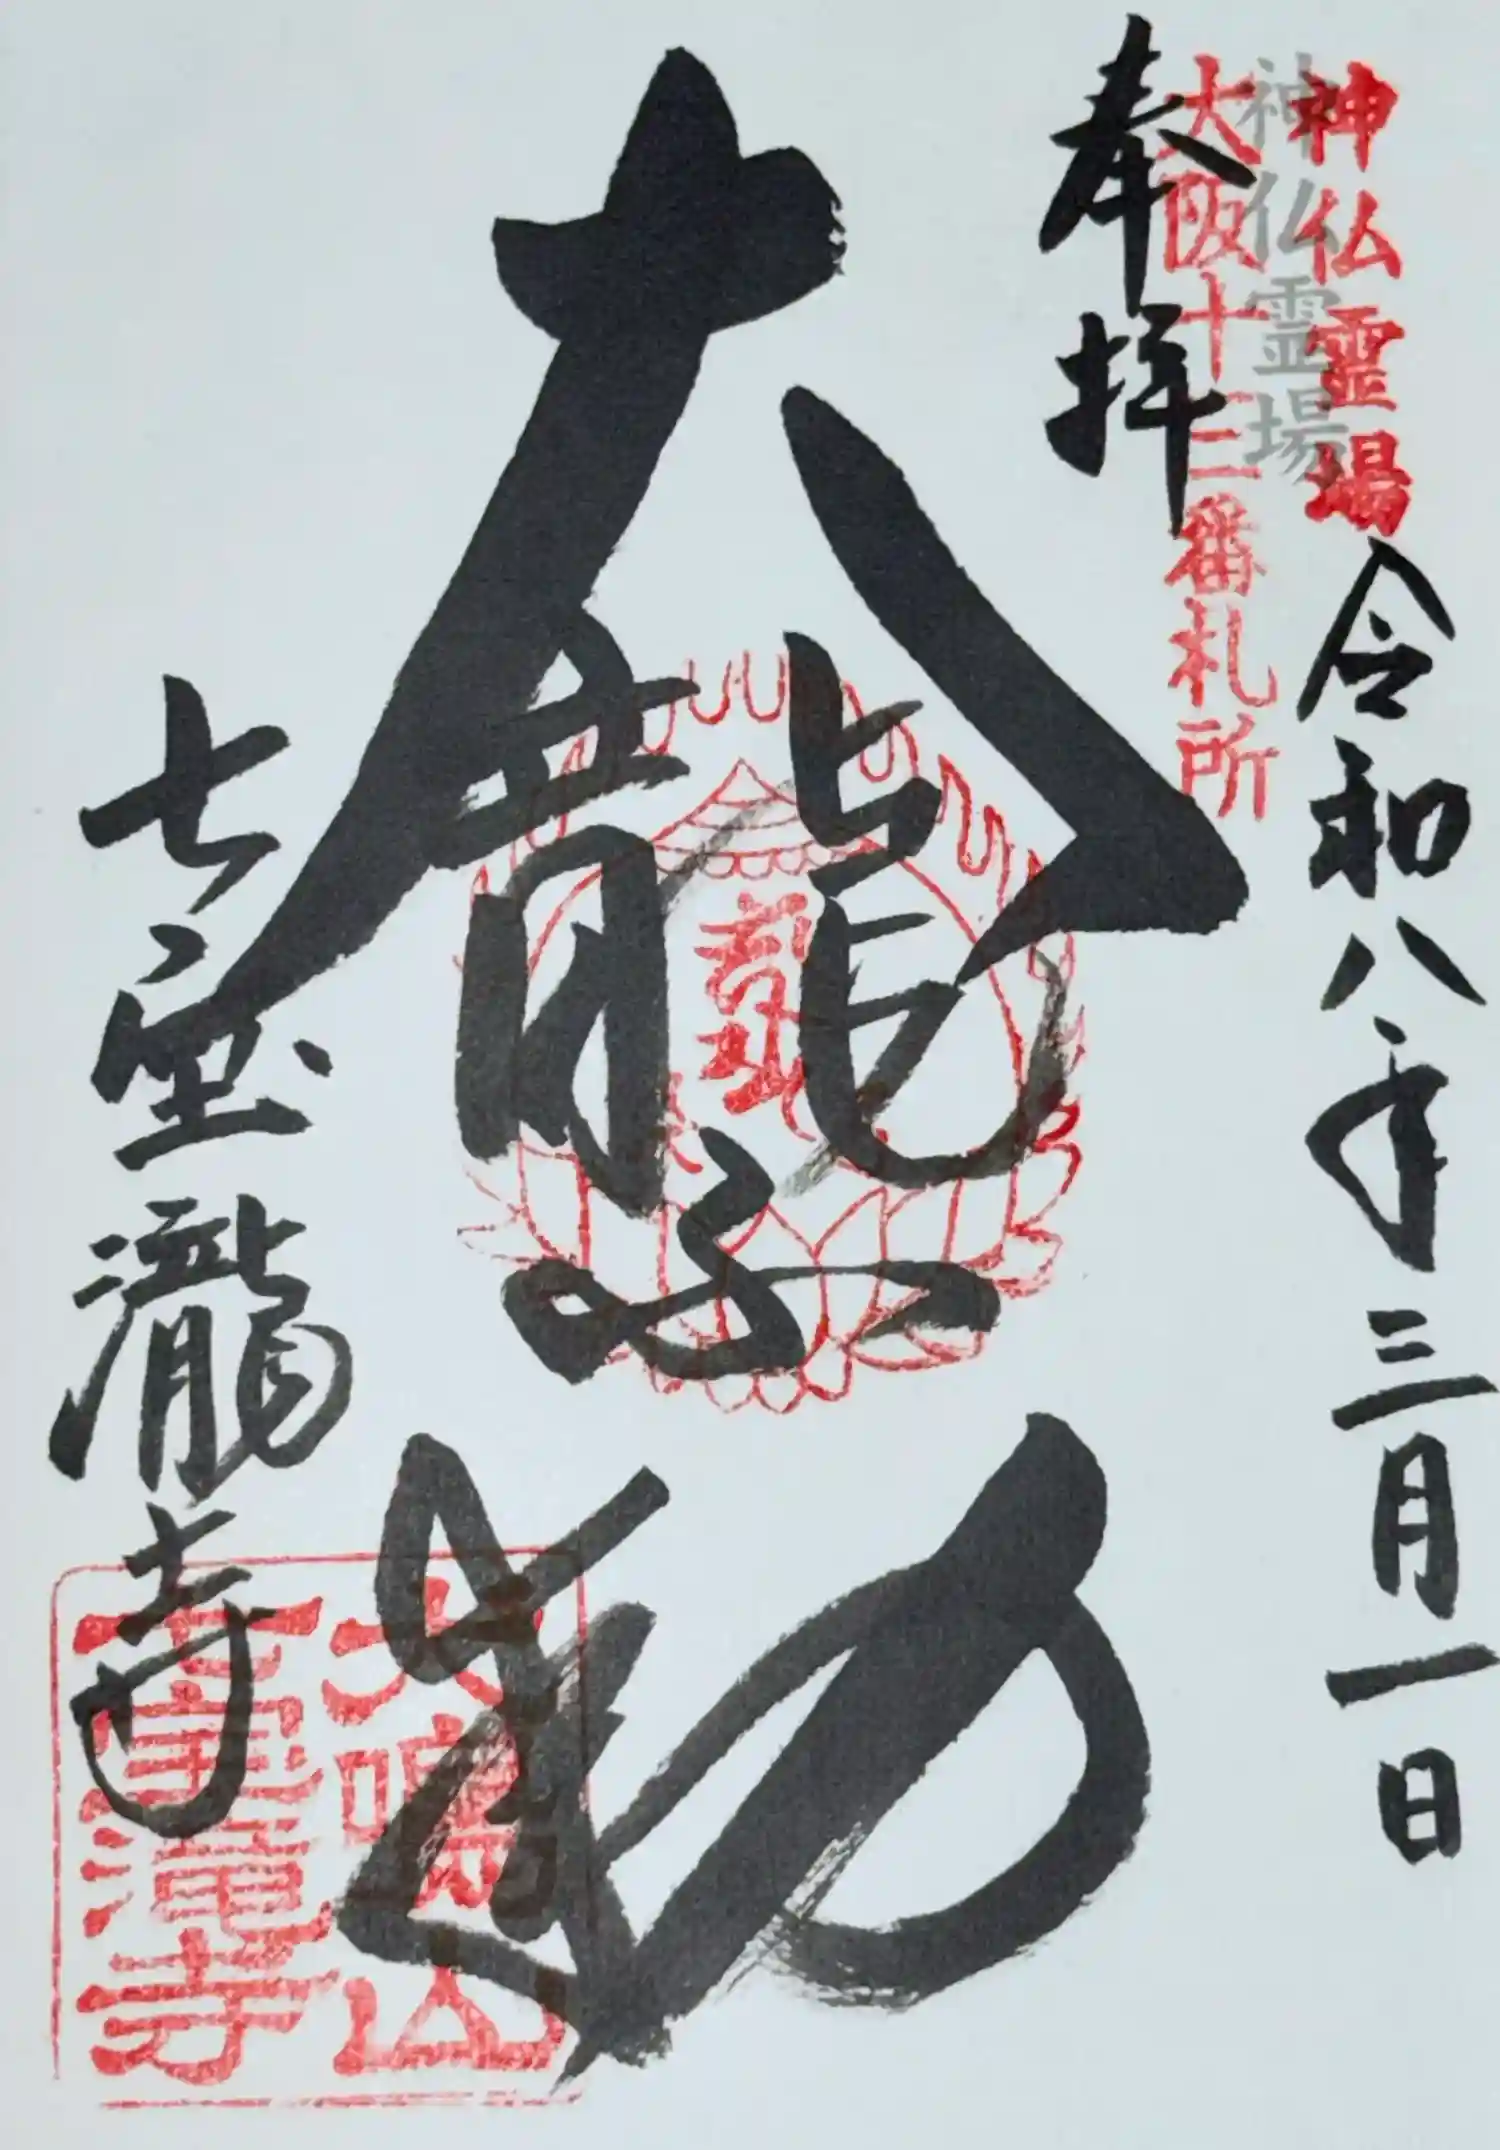 神仏霊場
令和八年三月一日
神仏霊場
大阪十三番札所
奉拝
大龍不動
七宝瀧寺
犬鳴山
七宝滝寺